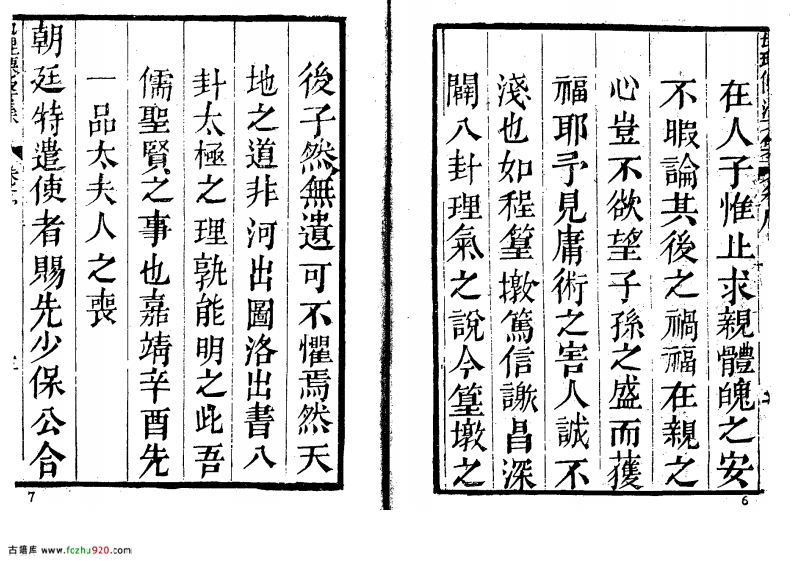 在人子惟止求親體魄之安
不暇論其後之禍福在親之
心豈不欲望子孫之盛而獲
福耶予見庸術之害人誠不
淺也如程篁墩篤信謝昌深
闢八卦理氣之說今篁墩之
6
後子然無遺可不懼焉然天
地之道非河出圖洛出書八
卦太極之理孰能明之此吾
儒聖賢之事也嘉靖辛酉先
一品太夫人之喪
朝廷特遣使者賜先少保公合
7
古籍库 www.fczhu920.com